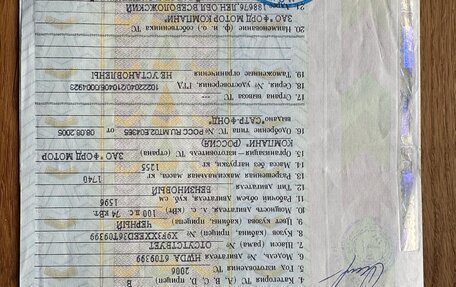 4. Категория ТС (А, В, С, D, прицеп) В
5. Год изготовления ТС 2006
6. Модель, № двигателя HWDA 6T09399
7. Шасси (рама) № ОТСУТСТВУЕТ
8. Кузов (кабина, прицеп) № X9FXXEEDX6T09399
9. Цвет кузова (кабины, прицепа) ЧЕРНЫЙ
10. Мощность двигателя, л. с. (кВт) 100 л.с. 74 кВт
11. Рабочий объем двигателя, куб. см 1596
12. Тип двигателя БЕНЗИНОВЫЙ
13. Разрешенная максимальная масса, кг 1740
14. Масса без нагрузки, кг 1255
15. Организация - изготовитель ТС (страна) ЗАО "ФОРД МОТОР
КОМПАНИ" (РОССИЯ)
16. Одобрение типа ТС № РОСС RU.MT02.E04365 от 08.08.2005
выдано "САТР-ФОНД"
17. Страна вывоза ТС ---
18. Серия, № удостоверения, ГТД
19. Таможенные ограничения НЕ УСТАНОВЛЕНЫ
20. Наименование (ф. и. о.) собственника ТС
ЗАО "ФОРД МОТОР КОМПАНИ"
21. Адрес 188676, ЛЕН.ОБЛ, ВСЕВОЛОЖСКИЙ